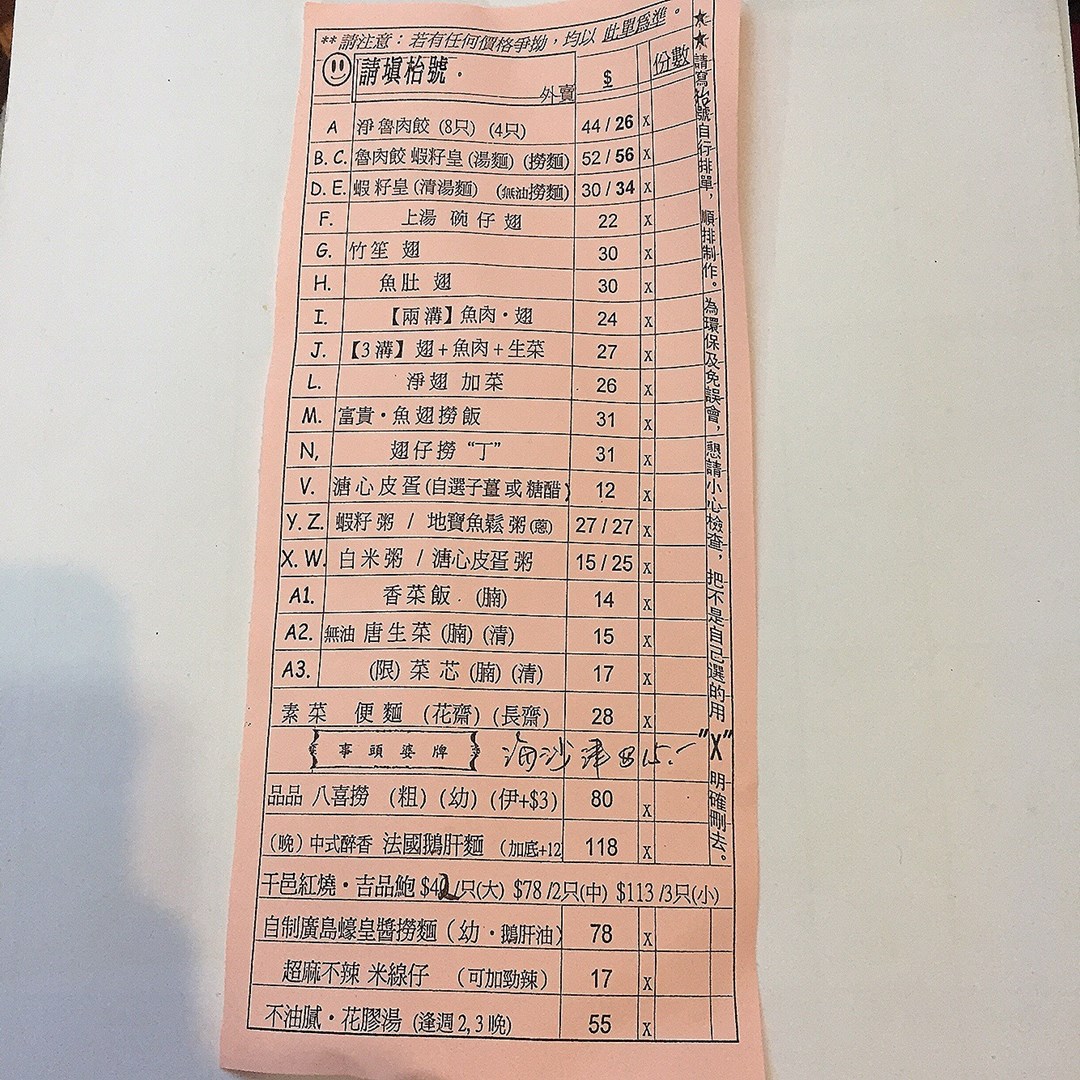 ** 請注意：若有任何價格爭拗，均以 此單為準。
請填枱號． 外賣 $ 份數
A 淨魯肉餃 (8只) (4只) 44 / 26 x
B. C. 魯肉餃 蝦籽皇 (湯麵) (撈麵) 52 / 56 x
D. E. 蝦籽皇 (清湯麵) (無油撈麵) 30 / 34 x
F. 上湯 碗仔翅 22 x
G. 竹笙 翅 30 x
H. 魚肚 翅 30 x
I. 【兩溝】魚肉・翅 24 x
J. 【3溝】翅+魚肉+生菜 27 x
L. 淨翅 加菜 26 x
M. 富貴・魚翅撈飯 31 x
N, 翅仔撈 “丁” 31 x
V. 溏心皮蛋 (自選子薑或糖醋) 12 x
Y. Z. 蝦籽粥 / 地寶魚鬆粥 (蔥) 27 / 27 x
X. W. 白米粥 / 溏心皮蛋粥 15 / 25 x
A1. 香菜飯 (腩) 14 x
A2. 無油 唐生菜 (腩) (清) 15 x
A3. (限) 菜芯 (腩) (清) 17 x
素菜 便麵 (花齋) (長齋) 28 x
事頭婆牌 海沙津
品品 八喜撈 (粗) (幼) (伊+$3) 80 x
(晚) 中式醉香 法國鵝肝麵 (加底+12 118 x
干邑紅燒・吉品鮑 $42/只(大) $78/2只(中) $113/3只(小)
自制廣島蠔皇醬撈麵 (幼・鵝肝油) 78 x
超麻不辣 米線仔 (可加勁辣) 17 x
不油膩・花膠湯 (逢週2,3晚) 55 x
★★請寫枱號自行排單，順排制作。為環保及免誤會，懇請小心檢查，把不是自己選的用"X"明確刪去。